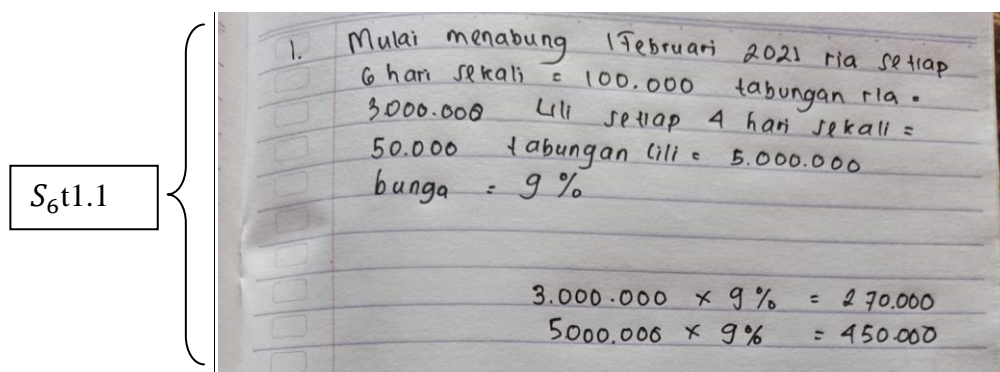 S₆t1.1
1. Mulai menabung 1 Februari 2021 ria setiap
6 hari sekali = 100.000 tabungan ria =
3.000.000 Lili setiap 4 hari sekali =
50.000 tabungan lili = 5.000.000
bunga = 9 %
3.000.000 x 9% = 270.000
5000.000 x 9% = 450.000